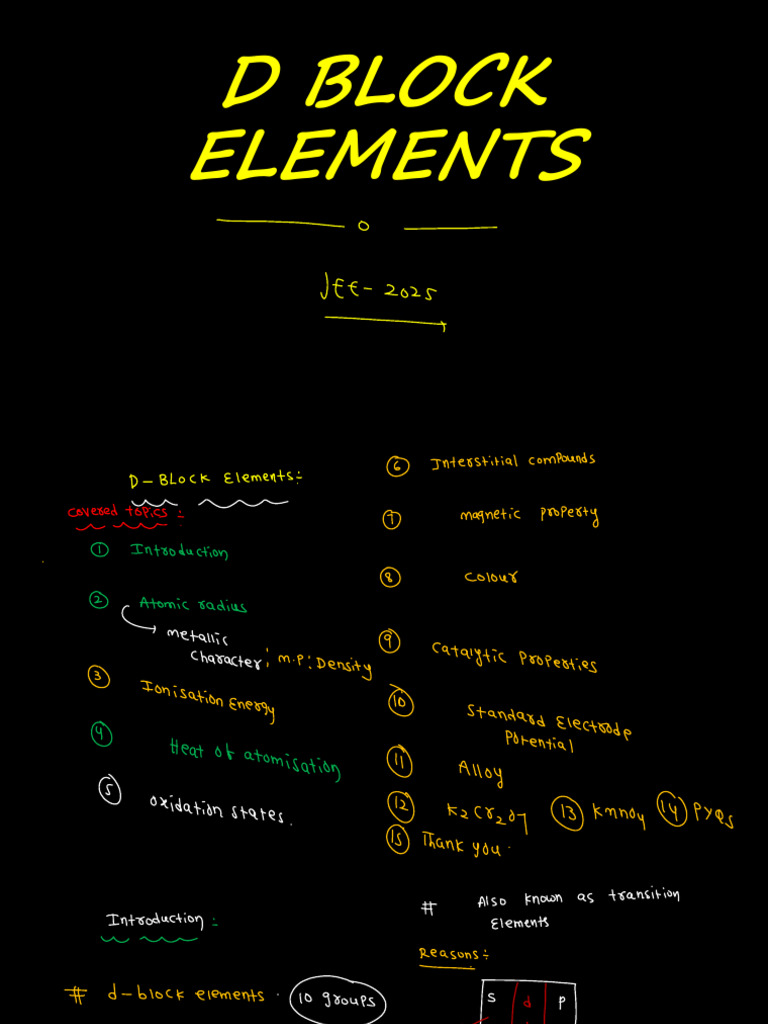 D BLOCK
ELEMENTS
JEE- 2025
D-BLOCK Elements:-
covered topics :-
1 Introduction
2 Atomic radius
metallic
character; m.p; Density
3 Ionisation Energy
4 Heat of atomisation
5 oxidation states.
6 Interstitial compounds
7 magnetic property
8 colour
9 catalytic Properties
10 Standard Electrode
Potential
11 Alloy
12 K2Cr2O7 13 kmnoy 14 PYQs
15 Thank you.
Introduction :-
# d-block elements. 10 groups
# Also known as transition
Elements
Reasons :-
S d p